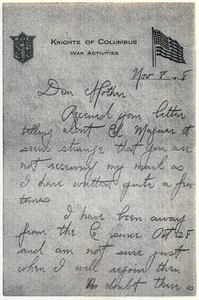 KNIGHTS OF COLUMBUS
WAR ACTIVITIES
Nov 8
Dear Mother
Received your letter
telling about Wagner it
seems strange that you are
not receiving my mail as
I have written quite a few
times
I have been away
from the since Oct 28
and am not sure just
when I will rejoin them
No doubt there is